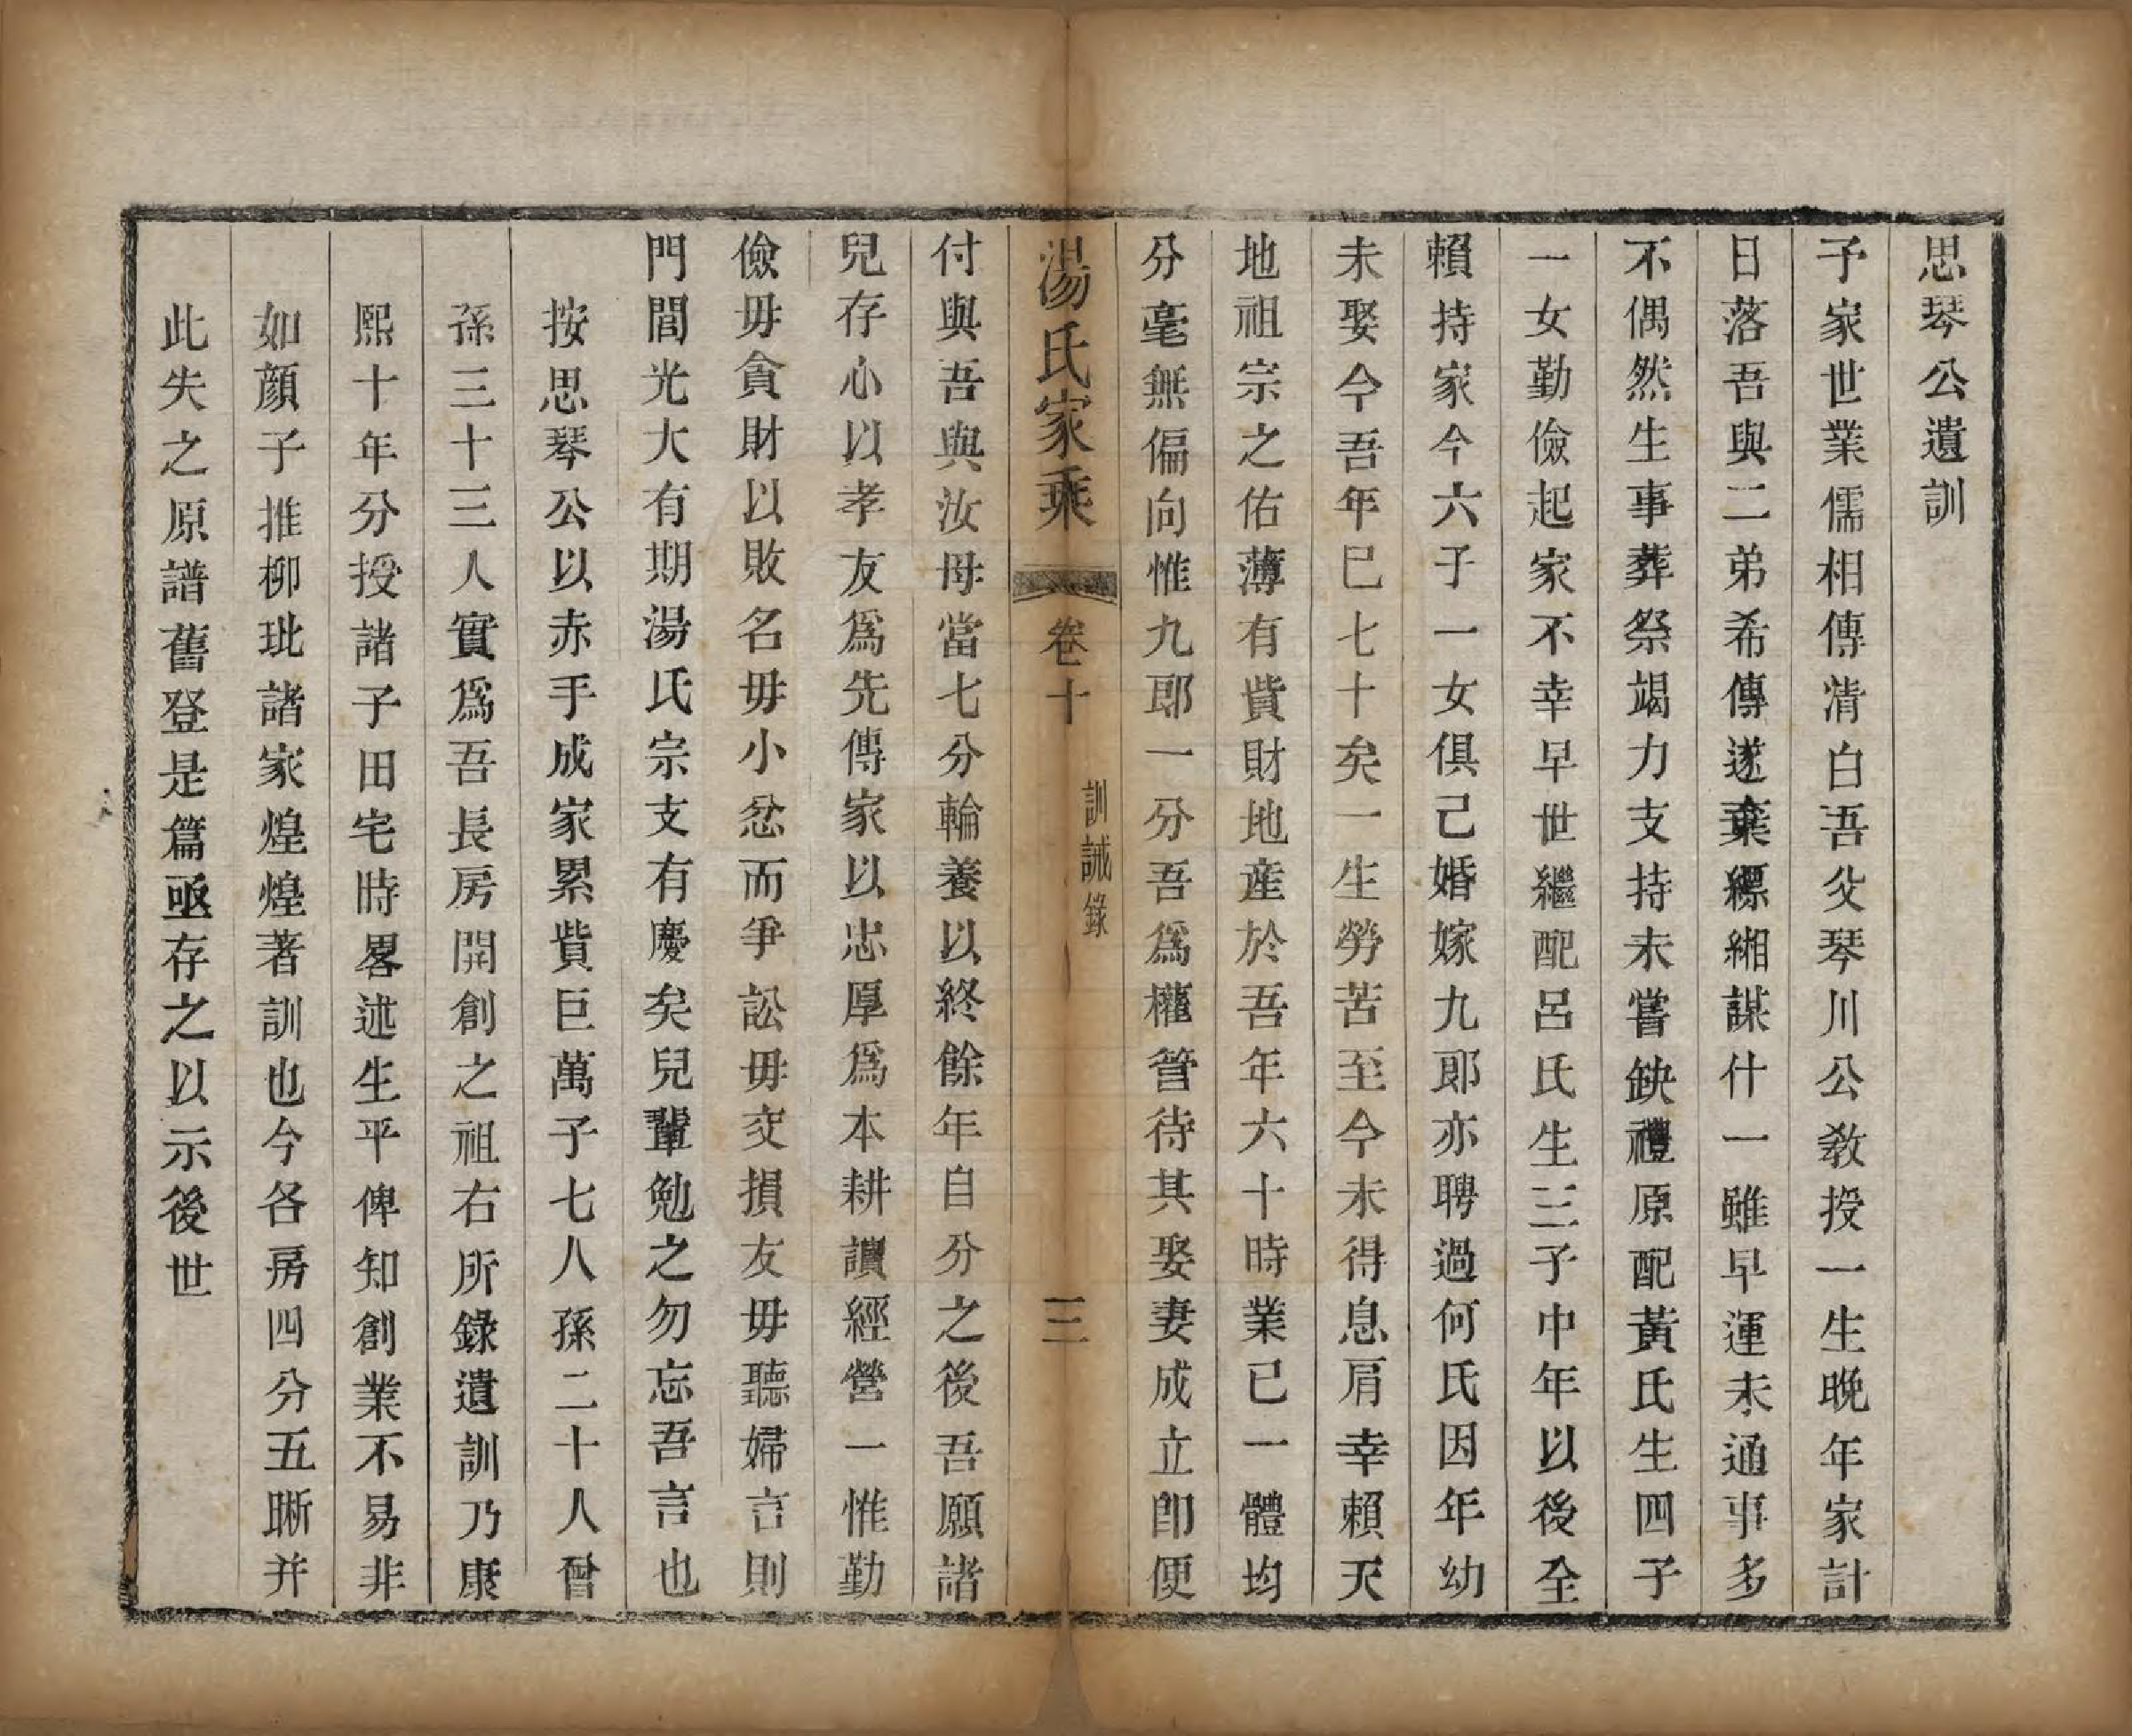 思琴公遺訓
予家世業儒相傳清白吾父琴川公教授一生晚年家計
日落吾與二弟希傳遂棄縹緗謀什一雖早運未通事多
不偶然生事葬祭竭力支持未嘗缺禮原配黃氏生四子
一女勤儉起家不幸早世繼配呂氏生三子中年以後全
賴持家今六子一女俱己婚嫁九郎亦聘過何氏因年幼
未娶今吾年巳七十矣一生勞苦至今未得息肩幸賴天
地祖宗之佑薄有貲財地產於吾年六十時業已一體均
分毫無偏向惟九郎一分吾爲權管待其娶妻成立卽便
湯氏家乘
卷十
訓誡錄
三
付與吾與汝母當七分輪養以終餘年自分之後吾願諸
兒存心以孝友爲先傳家以忠厚爲本耕讀經營一惟勤
儉毋貪財以敗名毋小忿而爭訟毋交損友毋聽婦言則
門閭光大有期湯氏宗支有慶矣兒輩勉之勿忘吾言也
按思琴公以赤手成家累貲巨萬子七人孫二十人曾
孫三十三人實爲吾長房開創之祖右所錄遺訓乃康
熙十年分授諸子田宅時畧述生平俾知創業不易非
如顏子推柳玭諸家煌煌著訓也今各房四分五晰并
此失之原譜舊登是篇亟存之以示後世